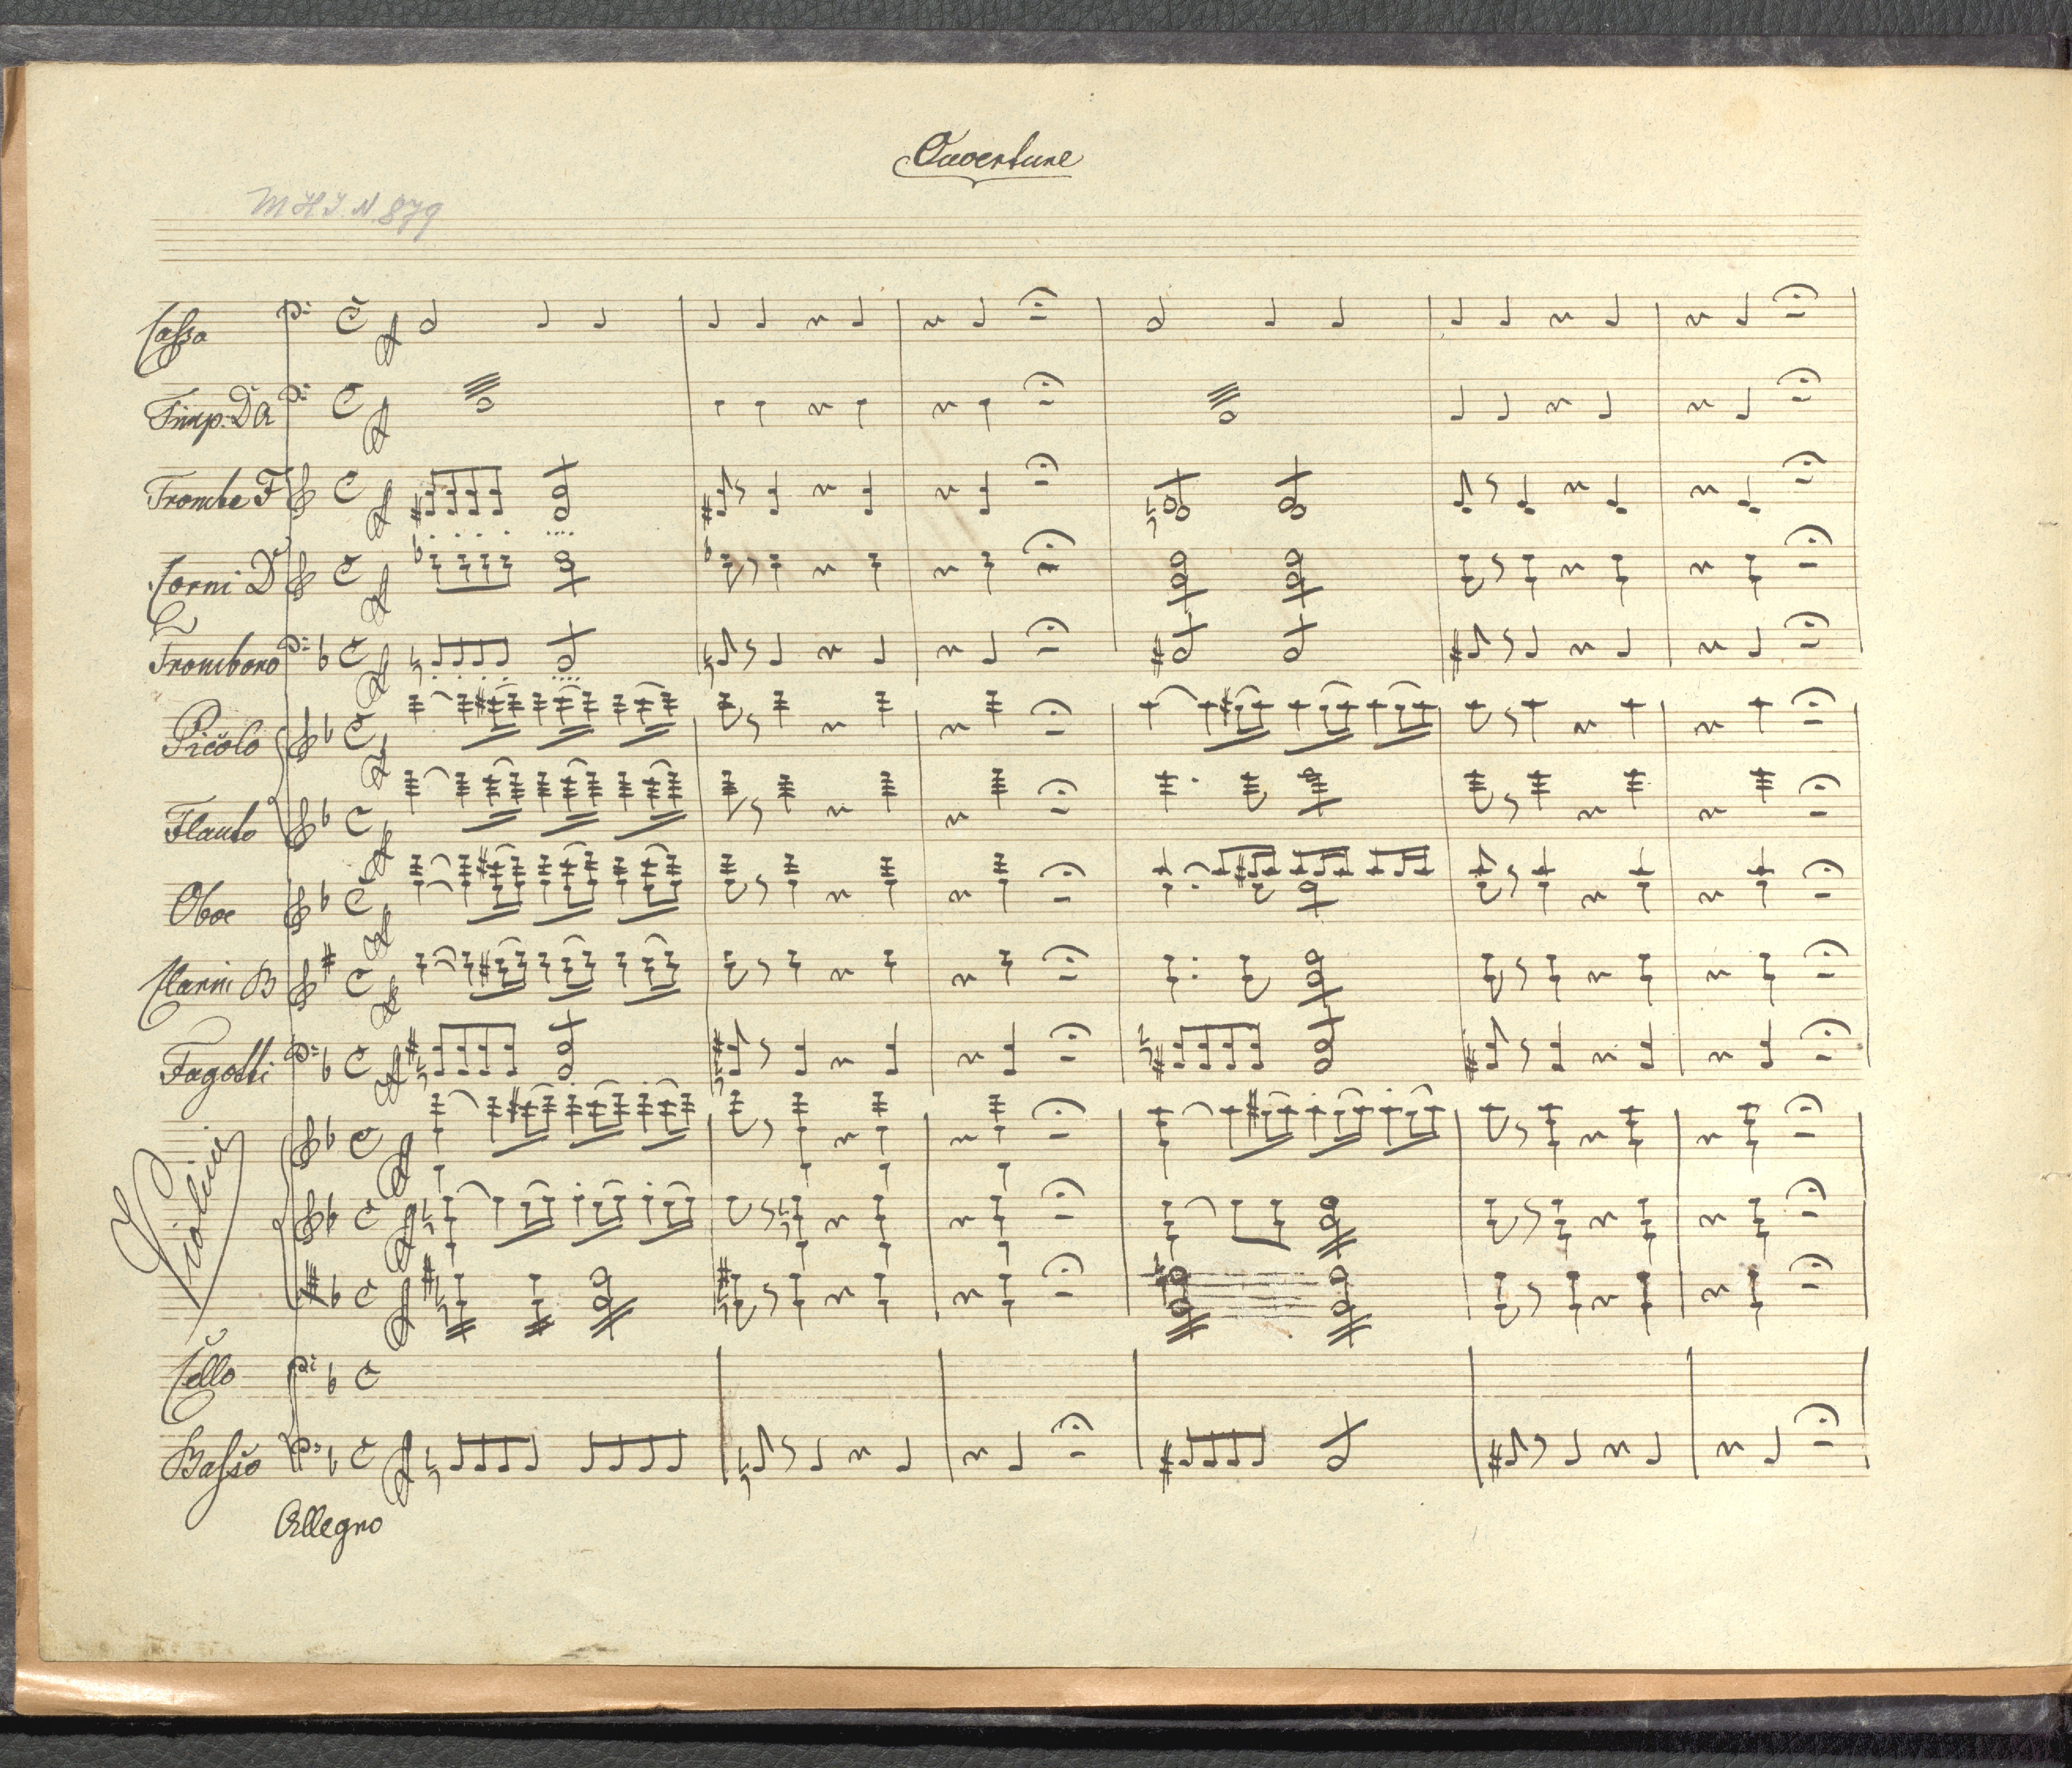 Ouverture
M H I. N. 879
Cassa
Timp. D A
Trombe F
Corni D
Trombono
Picolo
Flauto
Oboe
Clarini B
Fagotti
Violini
Cello
Basso
Allegro